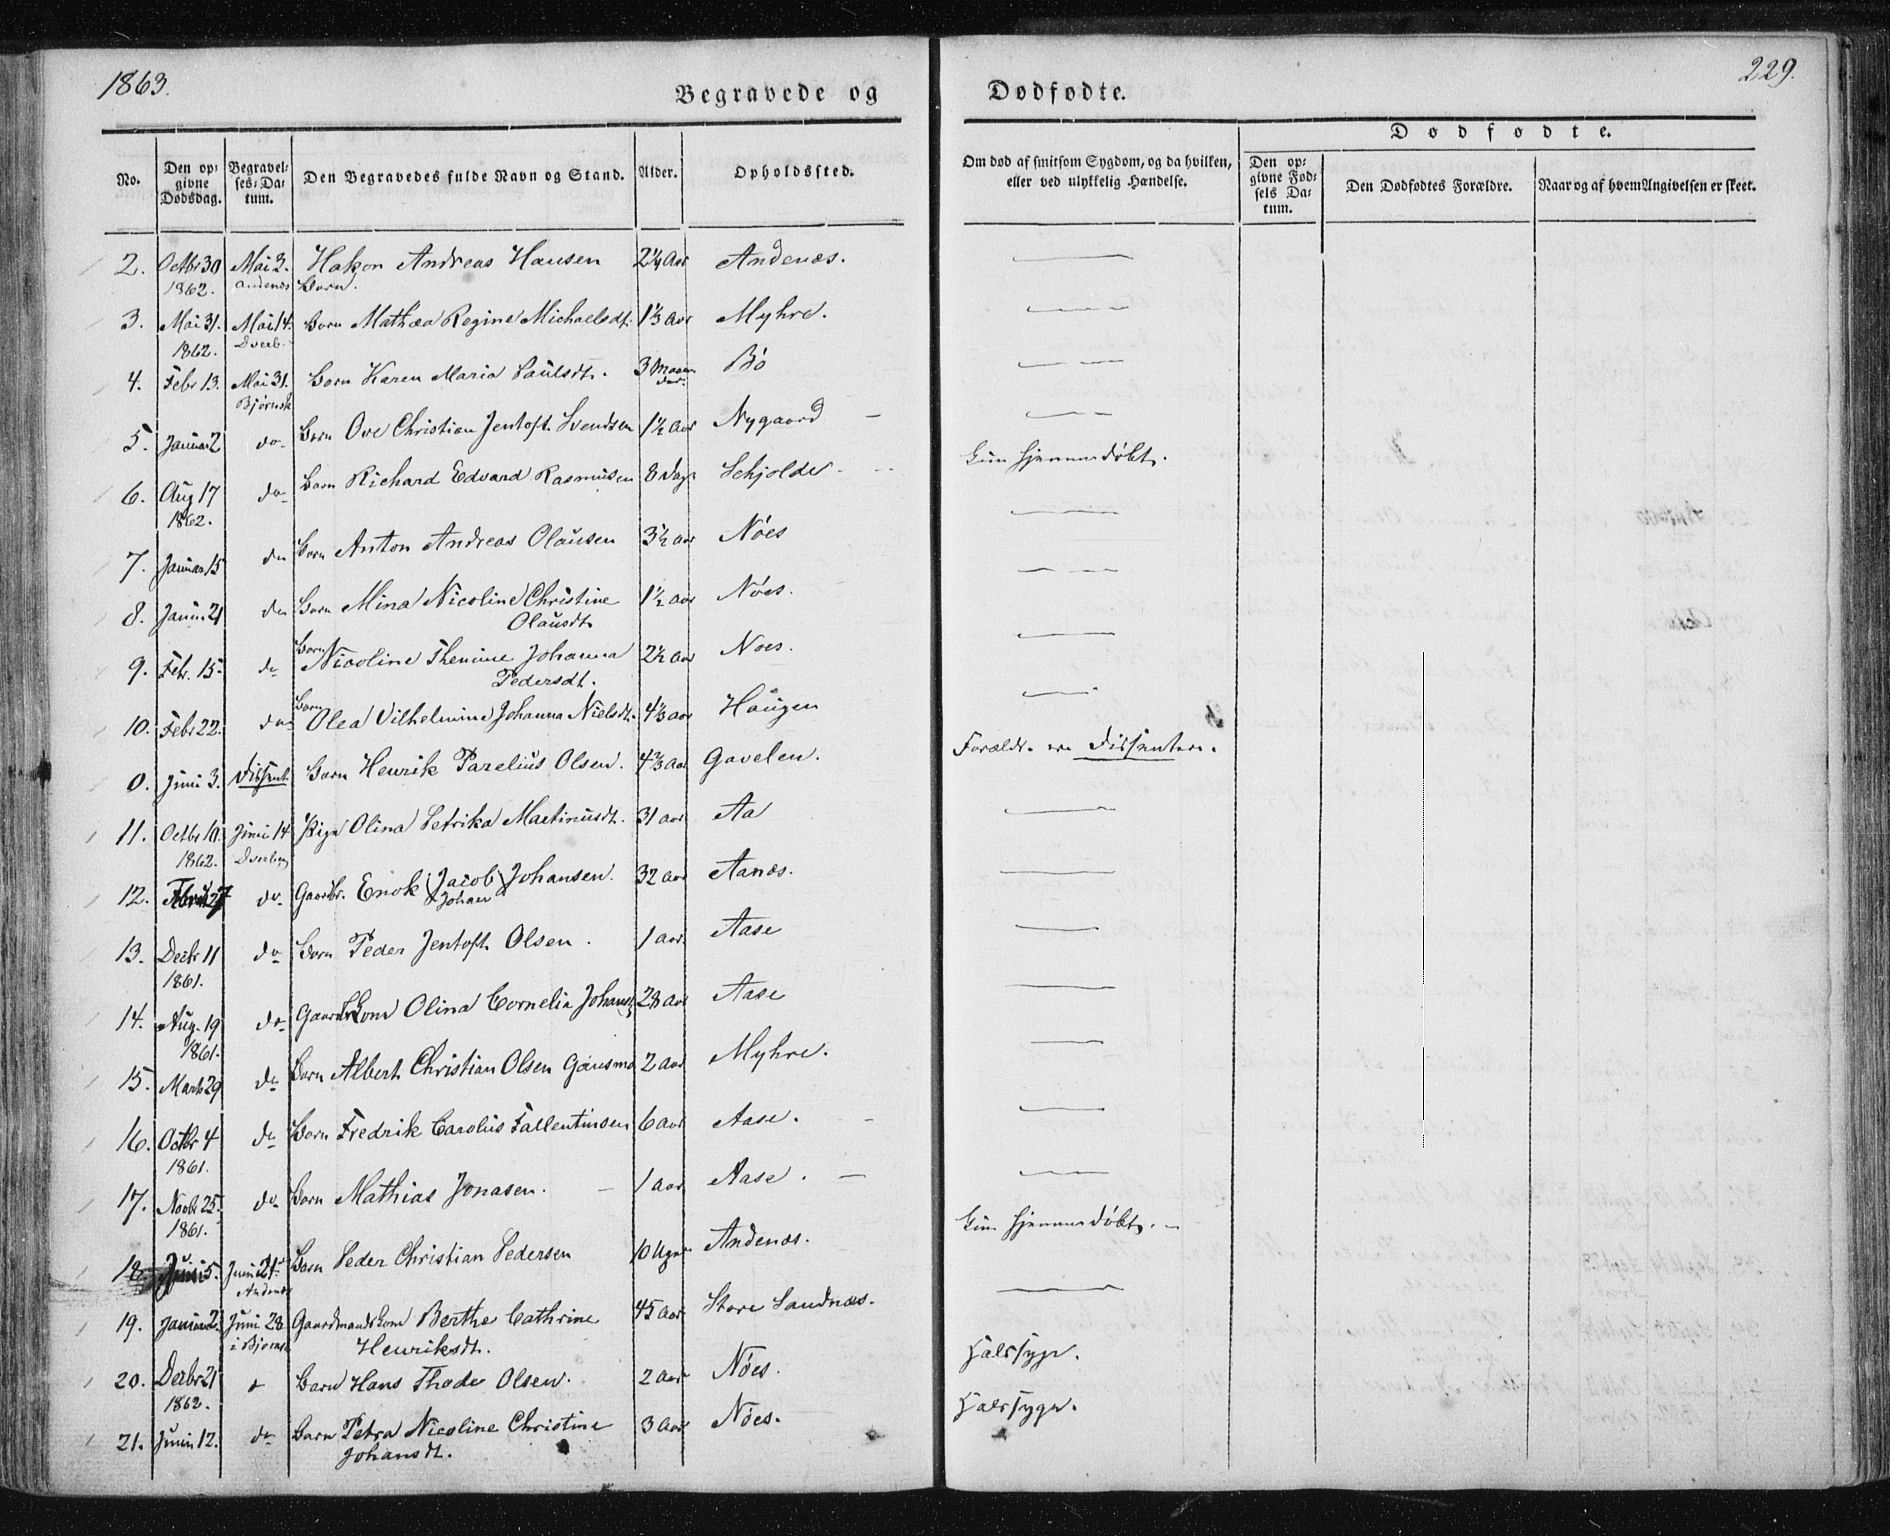 1863.
Begravede og Dødfødte.
229.
No.
Den opgivne Dødsdag.
Begravelses-Datum.
Den Begravedes fulde Navn og Stand.
Alder.
Opholdssted.
Om død af smitsom Sygdom, og da hvilken, eller ved ulykkelig Hændelse.
Dødfødte.
Den opgivne Fødsels Datum.
Den Dødfødtes Forældre.
Naar og af hvem Angivelsen er skeet.
2. Octbr 30 1862. Mai 3. Andenæs Hakon Andreas Hansen Barn. 2¼ Aar Andenæs.
3. Mai 31. 1862. Mai 14. Dverb. Barn Mathæa Regine Michaelsdt. 1⅓ Aar Myhre.
4. Febr 13. Mai 31. Bjørnsk Barn Karen Maria Paulsdt. 3 Maaneder. Bø
5. Januar 2 do Barn Ove Christian Jentoft Svendsen 1½ Aar Nygaard
6. Aug 17 1862. do Barn Richard Edvard Rasmussen 8 Dage Schjolde Kun hjemmedøbt.
7. Januar 15 do Barn Anton Andreas Olausen 3½ aar Nöes
8. Januar 21 do Barn Mina Nicoline Christine Olausdt. 1½ aar Nöes.
9. Febr. 15. do Barn Nicoline Johanna Pedersdt. 2½ Aar Noes.
10. Febr 22. do Barn Olea Vilhelmine Johanna Nielsdt. 4⅓ aar Haugen
0. Juni 3. Dissent. Barn Henrik Parelius Olsen. 4⅔ Aar Gavelen. Forældr. ere Dissentere.
11. Octbr 10. 1862. Juni 14 Dverberg Pige Olina Petrika Martinusdt. 31 aar Aa
12. 27 do Gaardbr. Enok (Jacob) Johansen. Johan 32 aar Aanæs.
13. Decbr 11 1861. do Barn Peder Jentoft Olsen. 1 aar. Aase
14. Aug. 19 1861. do Olina Cornelia 28 aar Aase
15. Marts 29 do Barn Albert Christian Olsen 2 aar Myhre.
16. Octbr 4 1861. do Barn Fredrik Carolus Fallentinsen 6 aar Aase.
17. Novbr 25. 1861. do Barn Mathias Jonasen. 1 aar Aase.
18. Juni 5. Juni 21 Andenæs Barn Peder Christian Pedersen 10 Uger Andenæs. Kun hjemmedøbt.
19. Januar 2 Juni 28 i Bjørnsk Gaardmandskone Berthe Cathrine Henriksdt. 45 aar Store Sandnæs.
20. Decbr 21 1862. Barn Hans Thode Olsen. 2 aar Nöes. Halssyge.
21. Juni 12. do Barn Petra Nicoline Christine Johansdt. 3 aar Nöes. Halssyge.